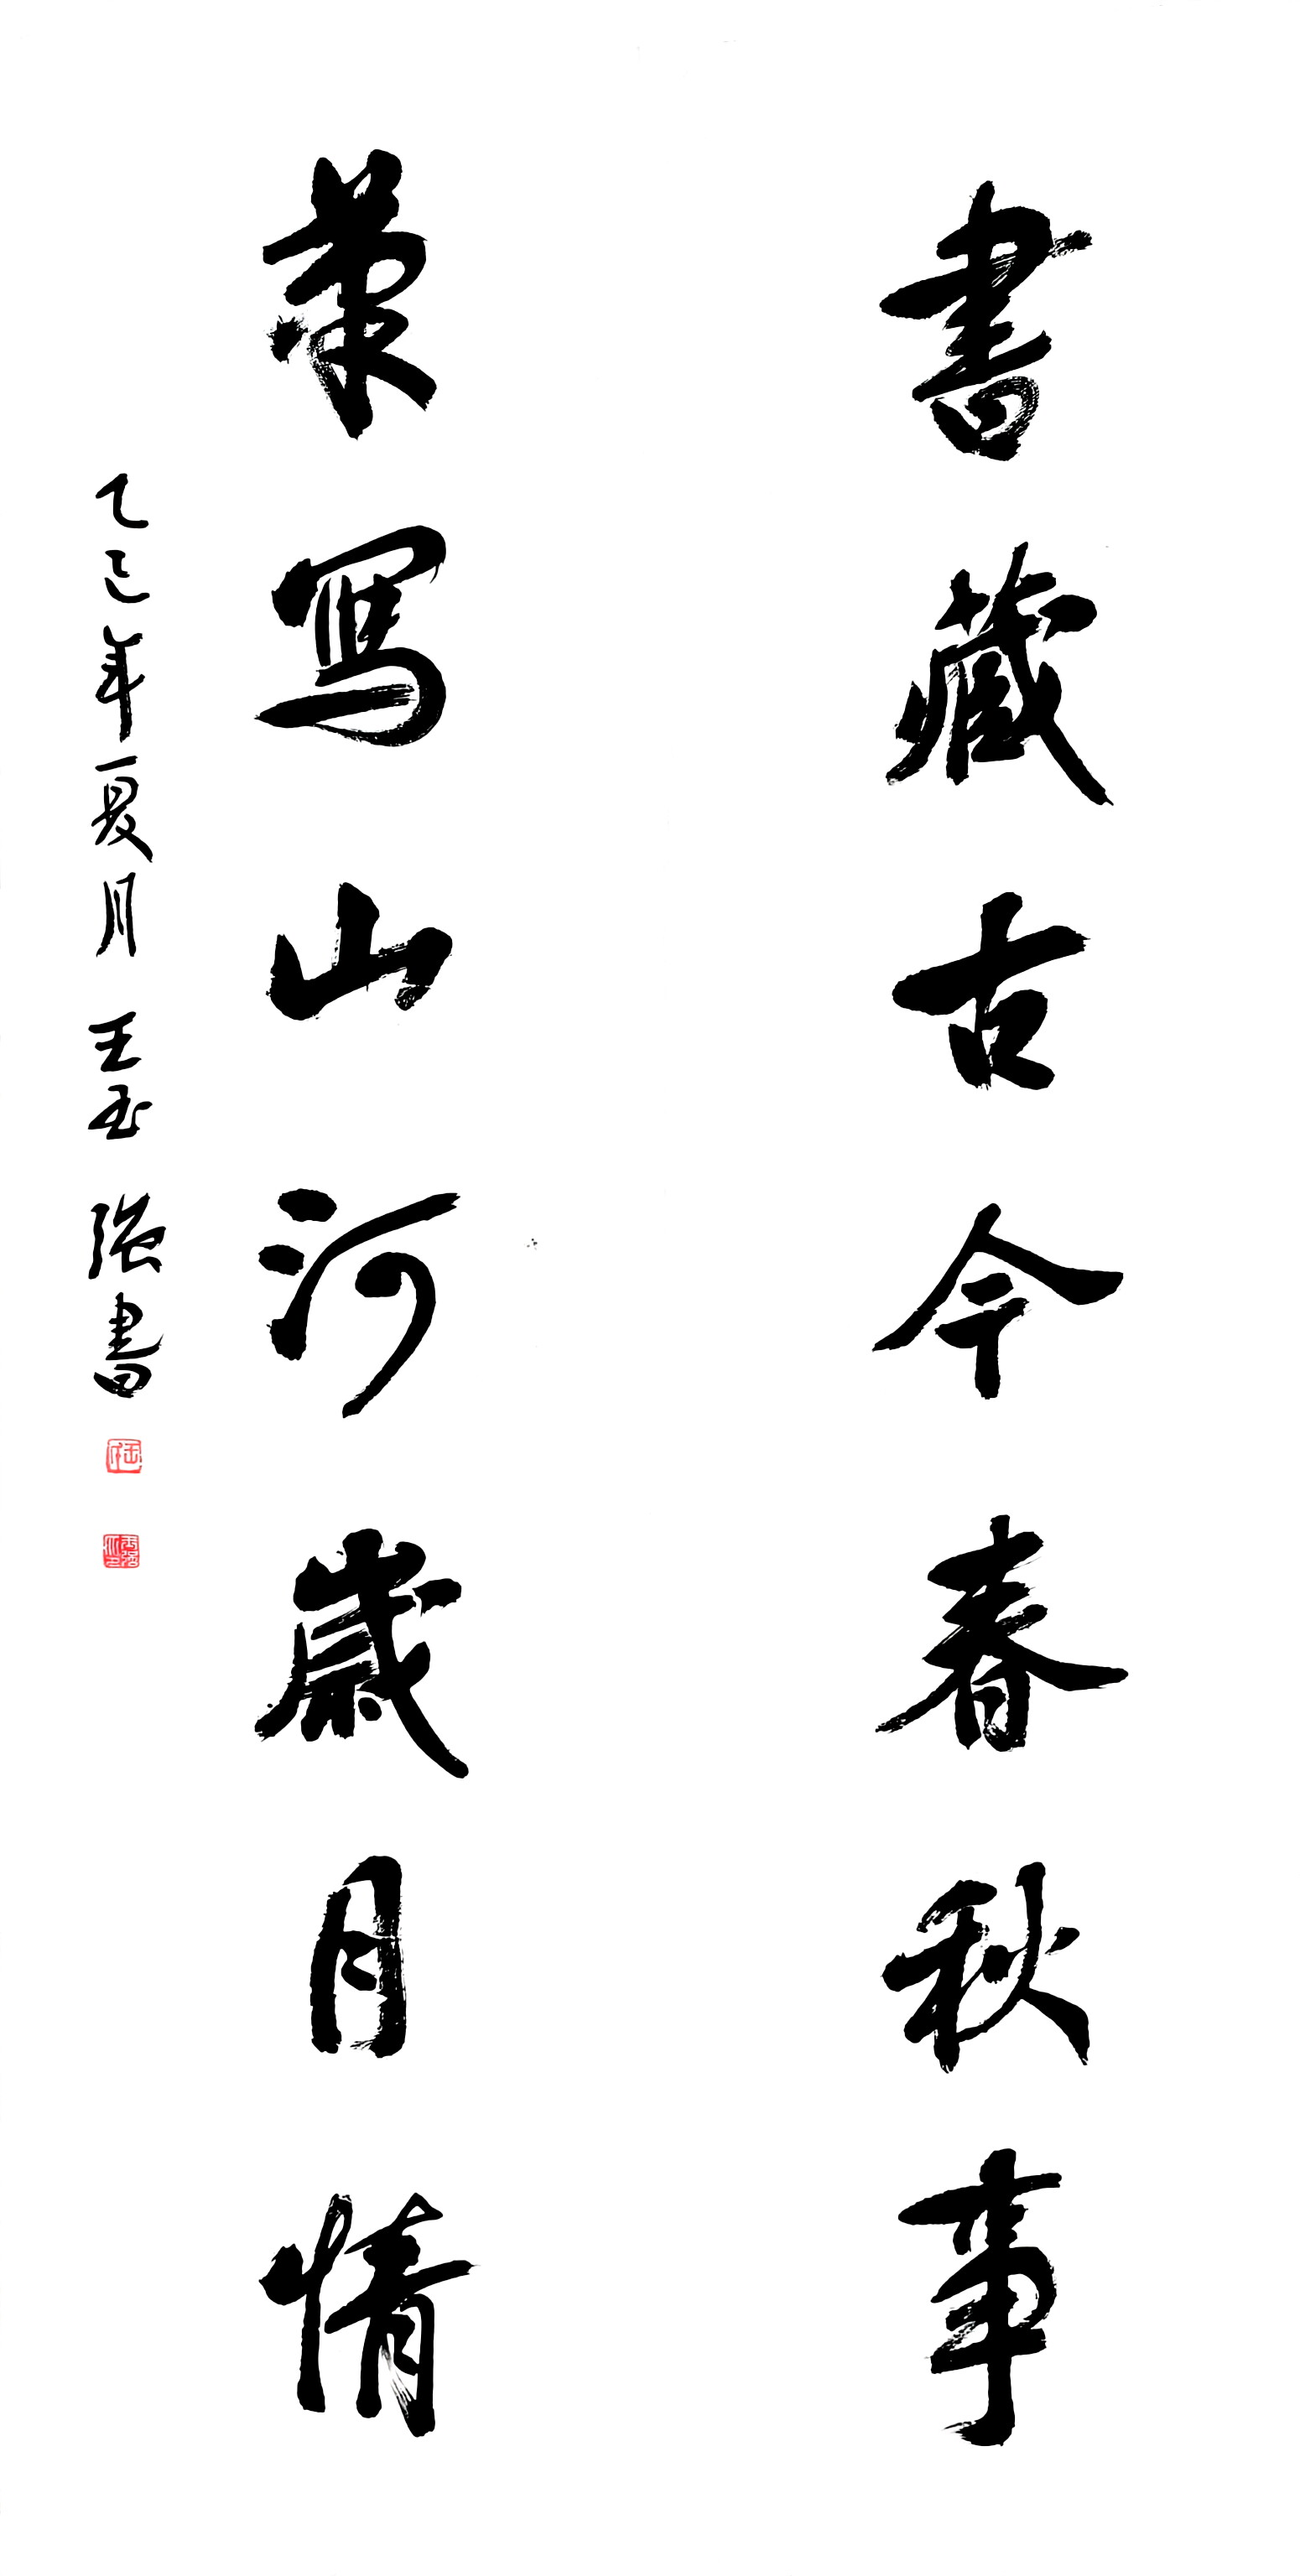 書藏古今春秋事
筆寫山河歲月情
乙巳年夏月 王玉強書